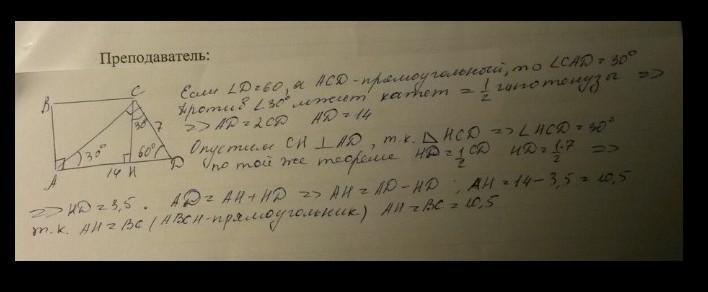 Преподаватель:
Если ∠D=60, а ACD-прямоугольный, то ∠CAD=30°
против ∠30° лежит катет = 1/2 гипотенузы =>
=> AD=2CD AD=14
Опустим CH ⊥ AD, т.к. △HCD => ∠HCD=30°
по той же теореме HD=1/2 CD HD=1/2·7 =>
=> HD=3,5. AD=AH+HD => AH=AD-HD; AH=14-3,5=10,5
т.к. AH=BC (ABCH-прямоугольник) AH=BC=10,5
B C
30° 7
30° 60°
A 14 H D